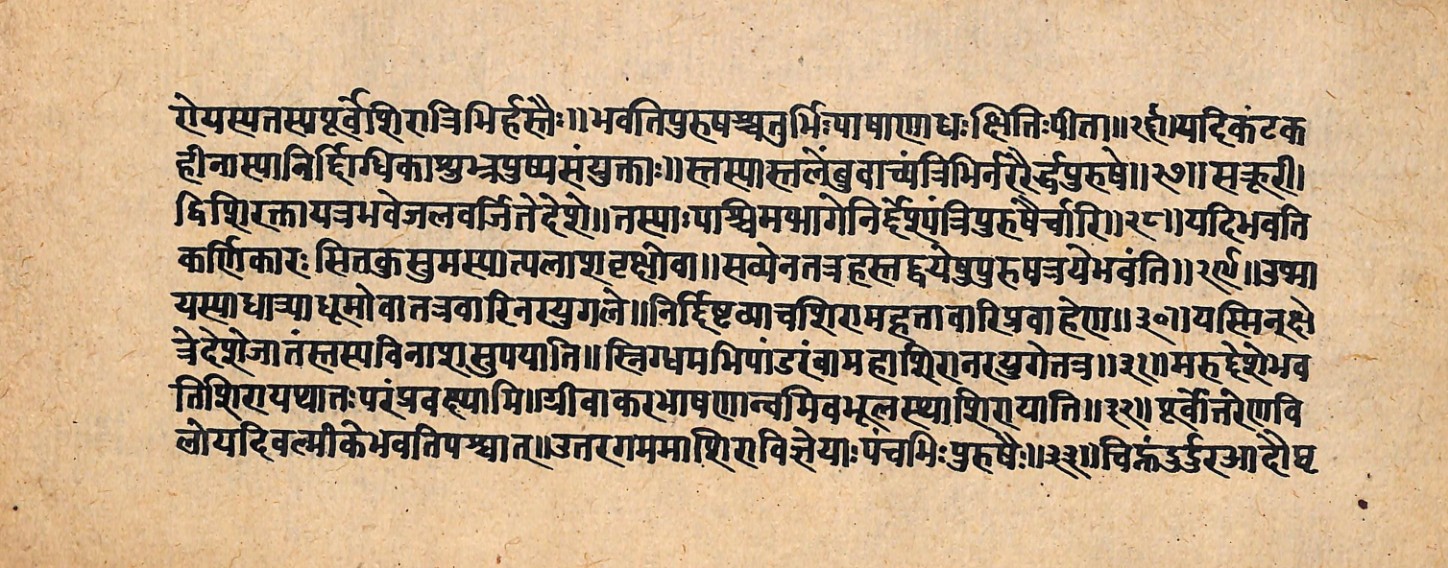 रोयस्यतस्यपूर्वेशिरात्रिभिर्हस्तैः॥भवतिपुरुषश्चतुर्भिःपाषाणाधःक्षितिःपीता॥२६॥यदिकंटक
हीनास्यानिर्द्दिग्धिकाशुभ्रपुष्पसंयुक्ताः॥स्तस्यास्तलेंबुवाच्यंत्रिभिर्नरैरर्द्धपुरुषे॥२७॥सर्जूरी।
द्विशिरक्तायत्रभवेजलवर्जितेदेशे॥तस्याःपाश्चिमभागेनिर्द्देश्यंत्रिपुरुषैर्वारि॥२८॥यदिभवति
कर्णिकारःसितकुसुमस्यात्पलाशवृक्षोवा॥सव्येनतत्रहस्तद्वयेषुपुरुषत्रयेभवंति॥२९॥उष्मा
यस्याधात्र्याधूमोवातत्रवारिनरयुगले॥निर्द्दिष्टव्याचशिरामहत्तावारिप्रवाहेण॥३०॥यस्मिन्क्षे
त्रेदेशेजातंस्तस्यविनाशसुपयाति॥स्निग्धमभिपांडरंवामहाशिरानरयुगेतत्र॥३१॥मरुद्देशेभव
तिशिरायथात्तःपरंप्रवक्ष्यामि॥ग्रीवाकरभाषणान्वमिवभूलस्थाशिरायाति॥३२॥पूर्वोत्तरेणवि
लोयदिवल्मीकेभवतिपश्चात्॥उत्तरगममाशिराविज्ञेयाःपंचभिःपुरुषैः॥३३॥चिह्नंदुर्दुरआदौघ